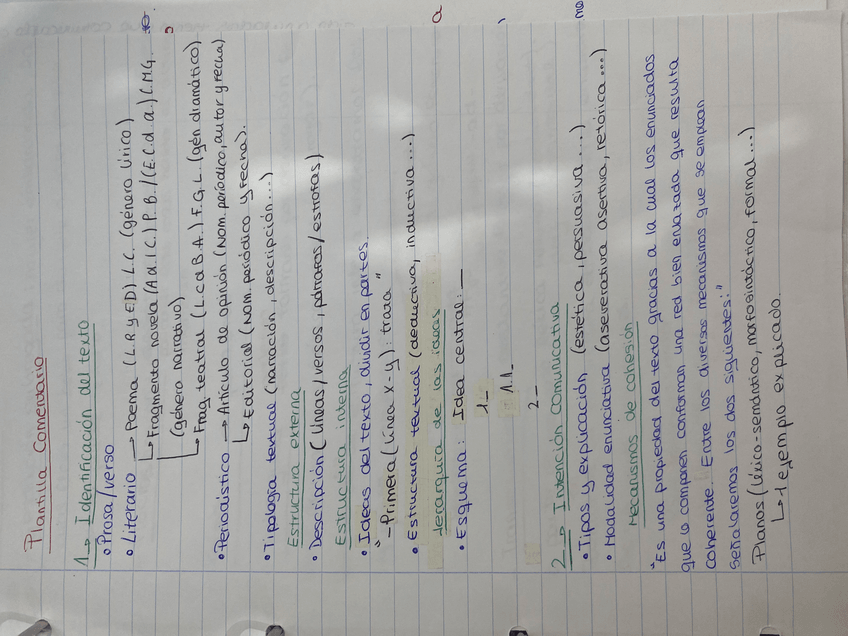 Plantilla Comentario
1 → Identificación del texto
• Prosa/verso
• Literario → Poema (L.R y E.D) L.C. (género lírico)
↳ Fragmento novela (A d.l C.) P.B./(E.C.d.a.) C.M.G.
(género narrativo)
↳ Frag. teatral (L.c d B.A.) F.G.L. (gén dramático)
• Periodístico → Artículo de opinión (Nom. periódico, autor y fecha)
↳ Editorial (Nom. periódico y fecha).
• Tipología textual (narración, descripción...)
Estructura externa
• Descripción (líneas/versos, párrafos/estrofas)
Estructura interna
• Ideas del texto, dividir en partes.
"- Primera (línea x-y): trata"
• Estructura textual (deductiva, inductiva...)
Jerarquía de las ideas
• Esquema: Idea central: _
1_
1.1_
2_
2 → Intención comunicativa
• Tipos y explicación (estética, persuasiva...)
• Modalidad enunciativa (aseverativa asertiva, retórica...)
Mecanismos de cohesión
"Es una propiedad del texto gracias a la cual los enunciados
que lo componen conforman una red bien enlazada que resulta
coherente. Entre los diversos mecanismos que se emplean
señalaremos los dos siguientes:"
Planos (léxico-semántico, morfosintáctico, formal...)
↳ 1 ejemplo explicado.